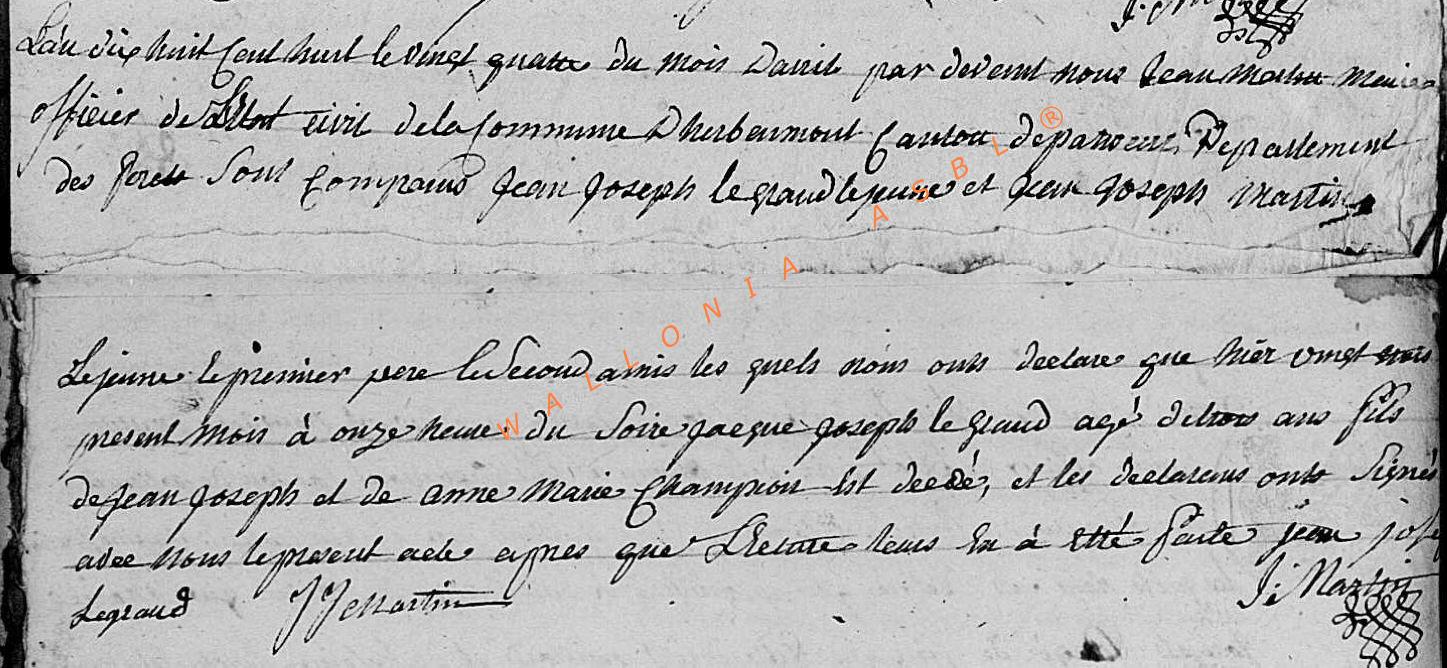 L'an dix huit Cent huit le vingt quatre du mois Davril par devent nous Jean Martin Maire
officier de Letat civil de la Commune Dherbeumont Canton de paliseul, Departement
des forets Sont Comparus Jean Joseph le grand le jeune et Jean Joseph Martin
Le jeune le premier pere le Second amis les quels nous onts declare que hier vingt trois
present mois à onze heure du Soire Jacque Joseph le grand agé de trois ans fils
de Jean Joseph et de anne Marie Champion Est decdé, et les declarans onts Signés
avec nous le present acte apres que Lecture leurs En à Etté faite jean jose
Legrand JJ Martin J: Martin
WALLONIA ASBL ®